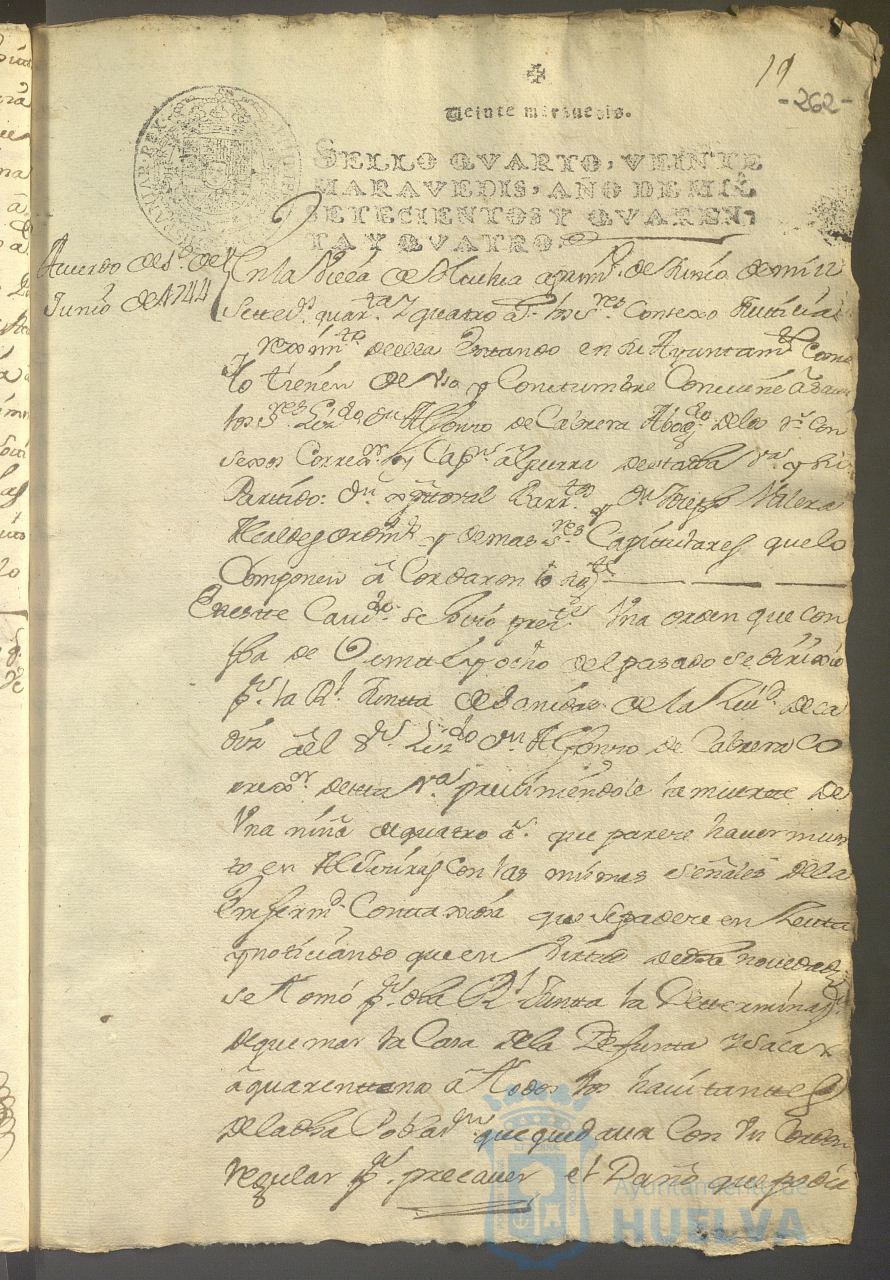 19
-262-
Veinte maravedis.
SELLO QVARTO, VEINTE
MARAVEDIS, AÑO DE MIL
SETECIENTOS Y QVAREN,
TA Y QVATRO.
Acuerdo de 1º de
Junio de 1744
En la Villa de Huelva a prim.º de Junio de mill
Settez.s quar.ta y quatro a.s los S.res Consexo Justicia
y reximi.to de ella Estando en su Ayuntam.to Como
lo tienen de uso y Constumbre Conviene a saver
los S.res Liz.do Dn Alfonso de Cabrera Abog.do de los R.s Con
sexos Correx.or y Cap.n a guerra de esta V.a y su
Partido: Dn Barr.to y Dn Joseph Valera
Alcaldes ordin.s y demas S.res Capitulares que lo
Componen a Cordaron lo sig.te
En este Cavi.do se vio pres.te Una orden que con
fha de Veinte y ocho del pasado se dirixio
p.r la R.l Junta de Sanidad de la Ziu.d de Ca
diz a el S.r Liz.do Dn Alfonso de Cabrera Co
rrex.or de esta V.a previniendole la muerte de
Una niña de quatro a.s que parece haver muer
to en Algeziras con las mismas señales de la
enferm.d Contaxiosa que se padece en Zeuta
y noticiando que en Virtud de esta novedad
se tomó p.r dha R.l Junta la Determinaz.n
de quemar la Casa de la Difunta y sacar
a quarentena a todos los havitantes
de la dha Poblaz.n que quedava con un Cordon
regular p.a precaver el Daño que podia
Ayuntamiento de
HUELVA